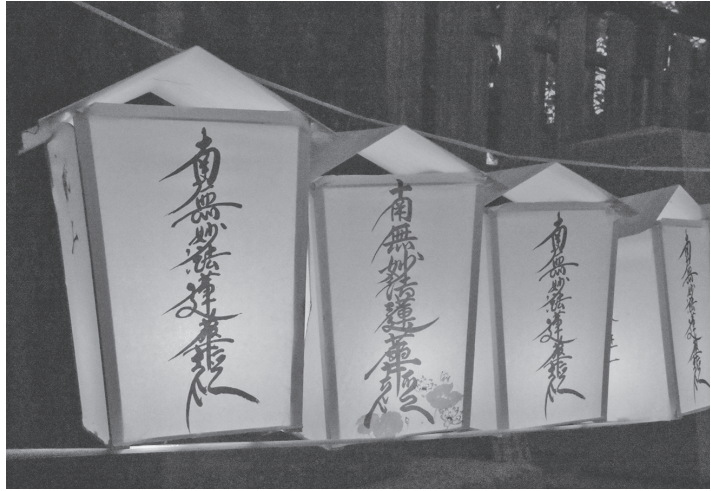 南無妙法蓮華經
南無妙法蓮華經
南無妙法蓮華經
南無妙法蓮華經